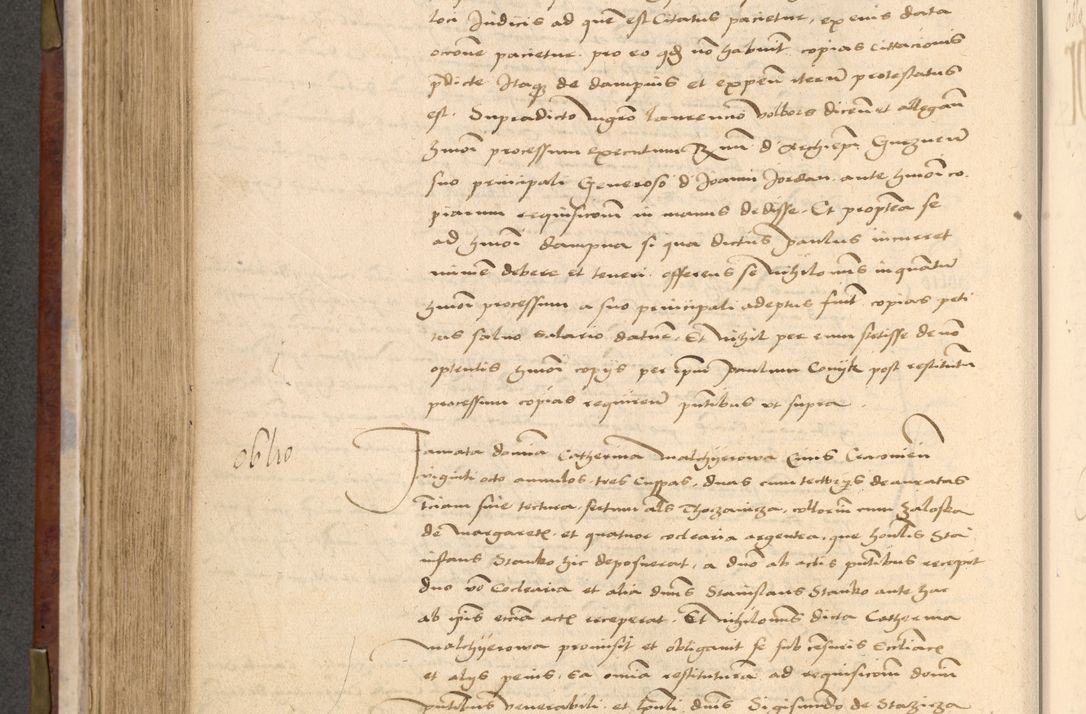 loci Judicis ad quē est Citatus pacietur, ex eius data
occōne pacietur. pro eo qđ nō habuit copias cittacionis
p̄dicte Itaq̨ de dampnis et expen̄ iterū protestatus
est. Supradicto Mgrō Laurencio Volbors dicen̄ et allegan̄
hmōi processum executum R̄ mi d Archiepi Gneznen̄
suo principali Generoso d Joanni Jordan. ante hmōi co
piarum requisicom̄ in manus dedisse. Et propterea se
ad hmōi dampna si qua dictus paulus incurret
minime debere et teneri. offerens se nihilomīs inquantū
hmōi processum a suo principali adeptus fuit. copias peti
tas saluo salario datur. Et nihil per eum stetisse de nō
optentis hmōi copijs per ip̄m Paulum Conyk post restitutū
processum copias requiren̄ p̄ntibus vt supra.
oblio
Famata domīa Catherina Malchyerowa Ciuis Cracouien̄
viginti octo annulos. tres Cuppas. duas cum tectorijs deauratas
Tciam sine tectura. sertum als Thkzanicza. collorin cum zaloska
de Margaret. et quatuor coclearia argentea. que honlis Sta
nislaus Stanko hic deposuerat. a dnō ab actis p̄ntibus recepit
duo vō Coclearia et alia dnūs Stanislaus Stanko ante hac
ab ip̄is eciā act receperat. Et nihilomīs dicta Catherina
Malchyerowa promisit et obligauit se sub cēsuris Ecc̄liac
et alijs penis. Ea omīa restituturā ad requisicom̄ domī
p̄ntibus venerabili. et honli dnīs Sigismundo de Stazicza